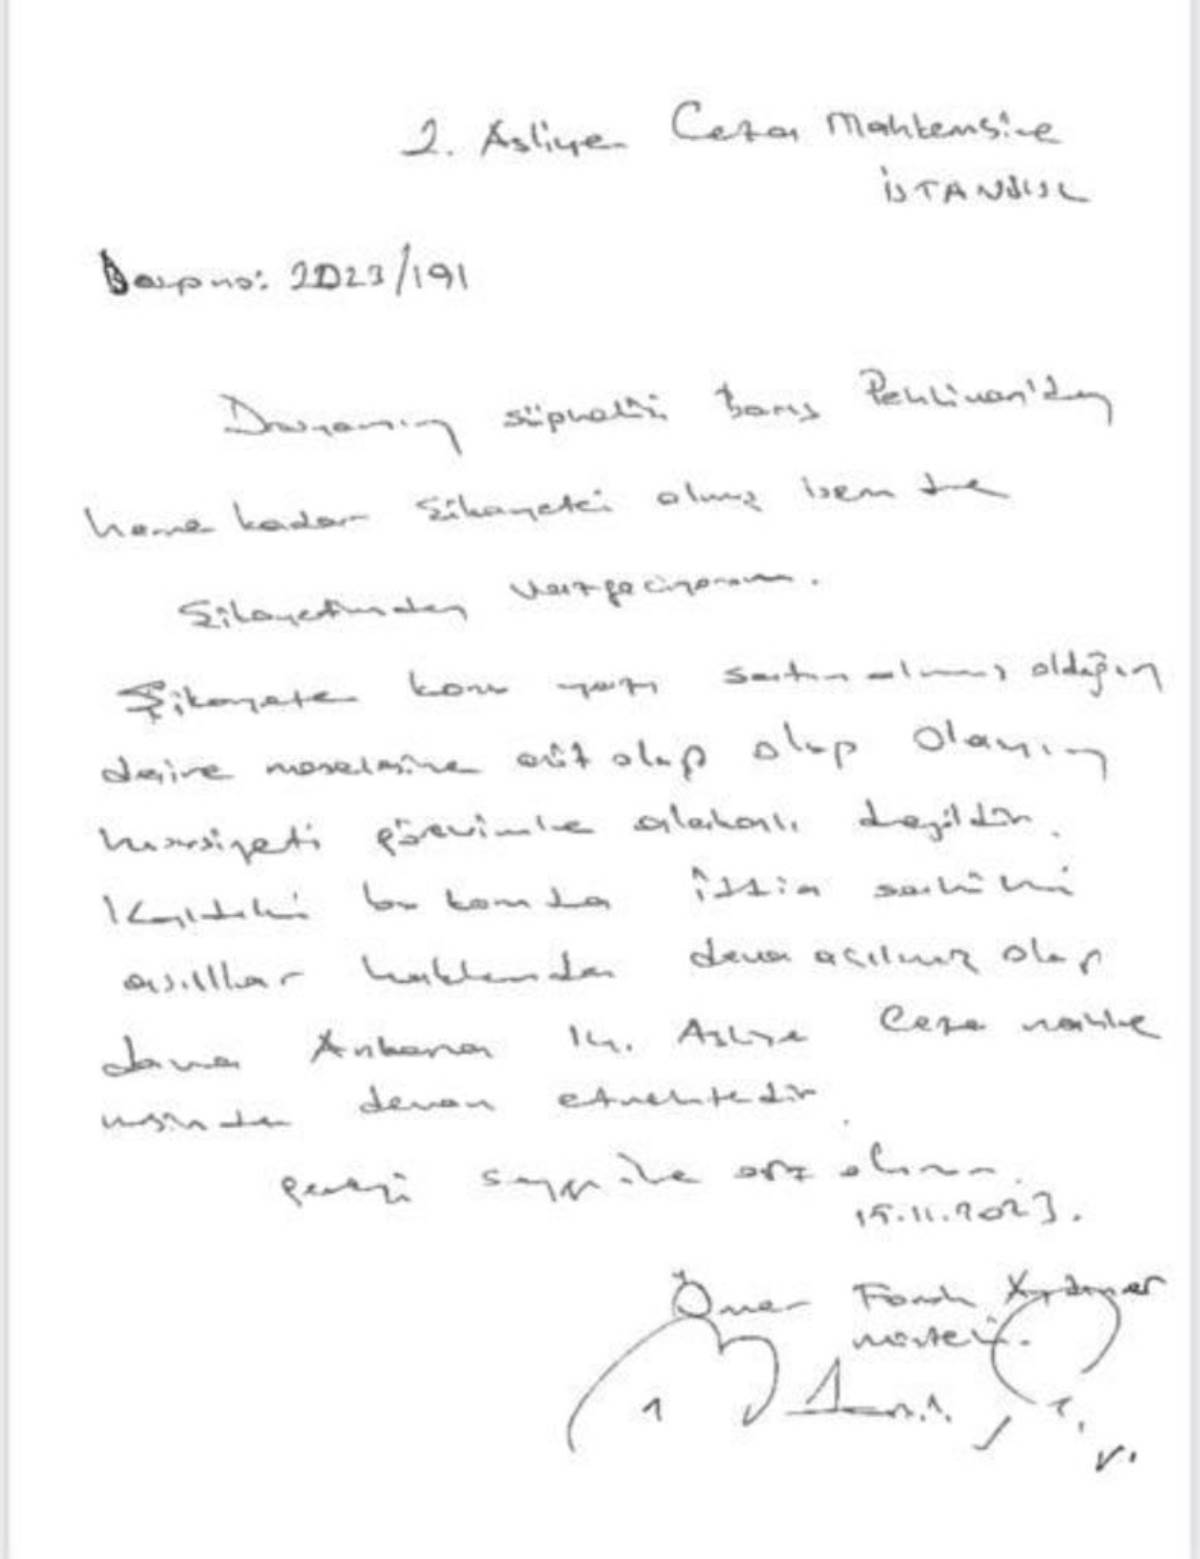 2. Asliye Ceza Mahkemsine
İSTANBUL
Dosya no: 2023/191
Davanın şüphelisi Barış Pehlivan'dan
her ne kadar şikayetci olmuş isem de
Şikayetimden vazgeciyorum.
Şikayete konu yazı satın almış olduğum
daire meselesine ait olup olup olayın
hususiyeti görevimle alakalı değildir.
Kaldıki bu konuda iddia sahibi
asıllar hakkında dava açılmış olup
dava Ankara 14. Asliye Ceza mahke
mesinde devam etmektedir.
Gereği saygı ile arz olunur.
15.11.2023.
Ömer Faruk Aydıner
müşteki.